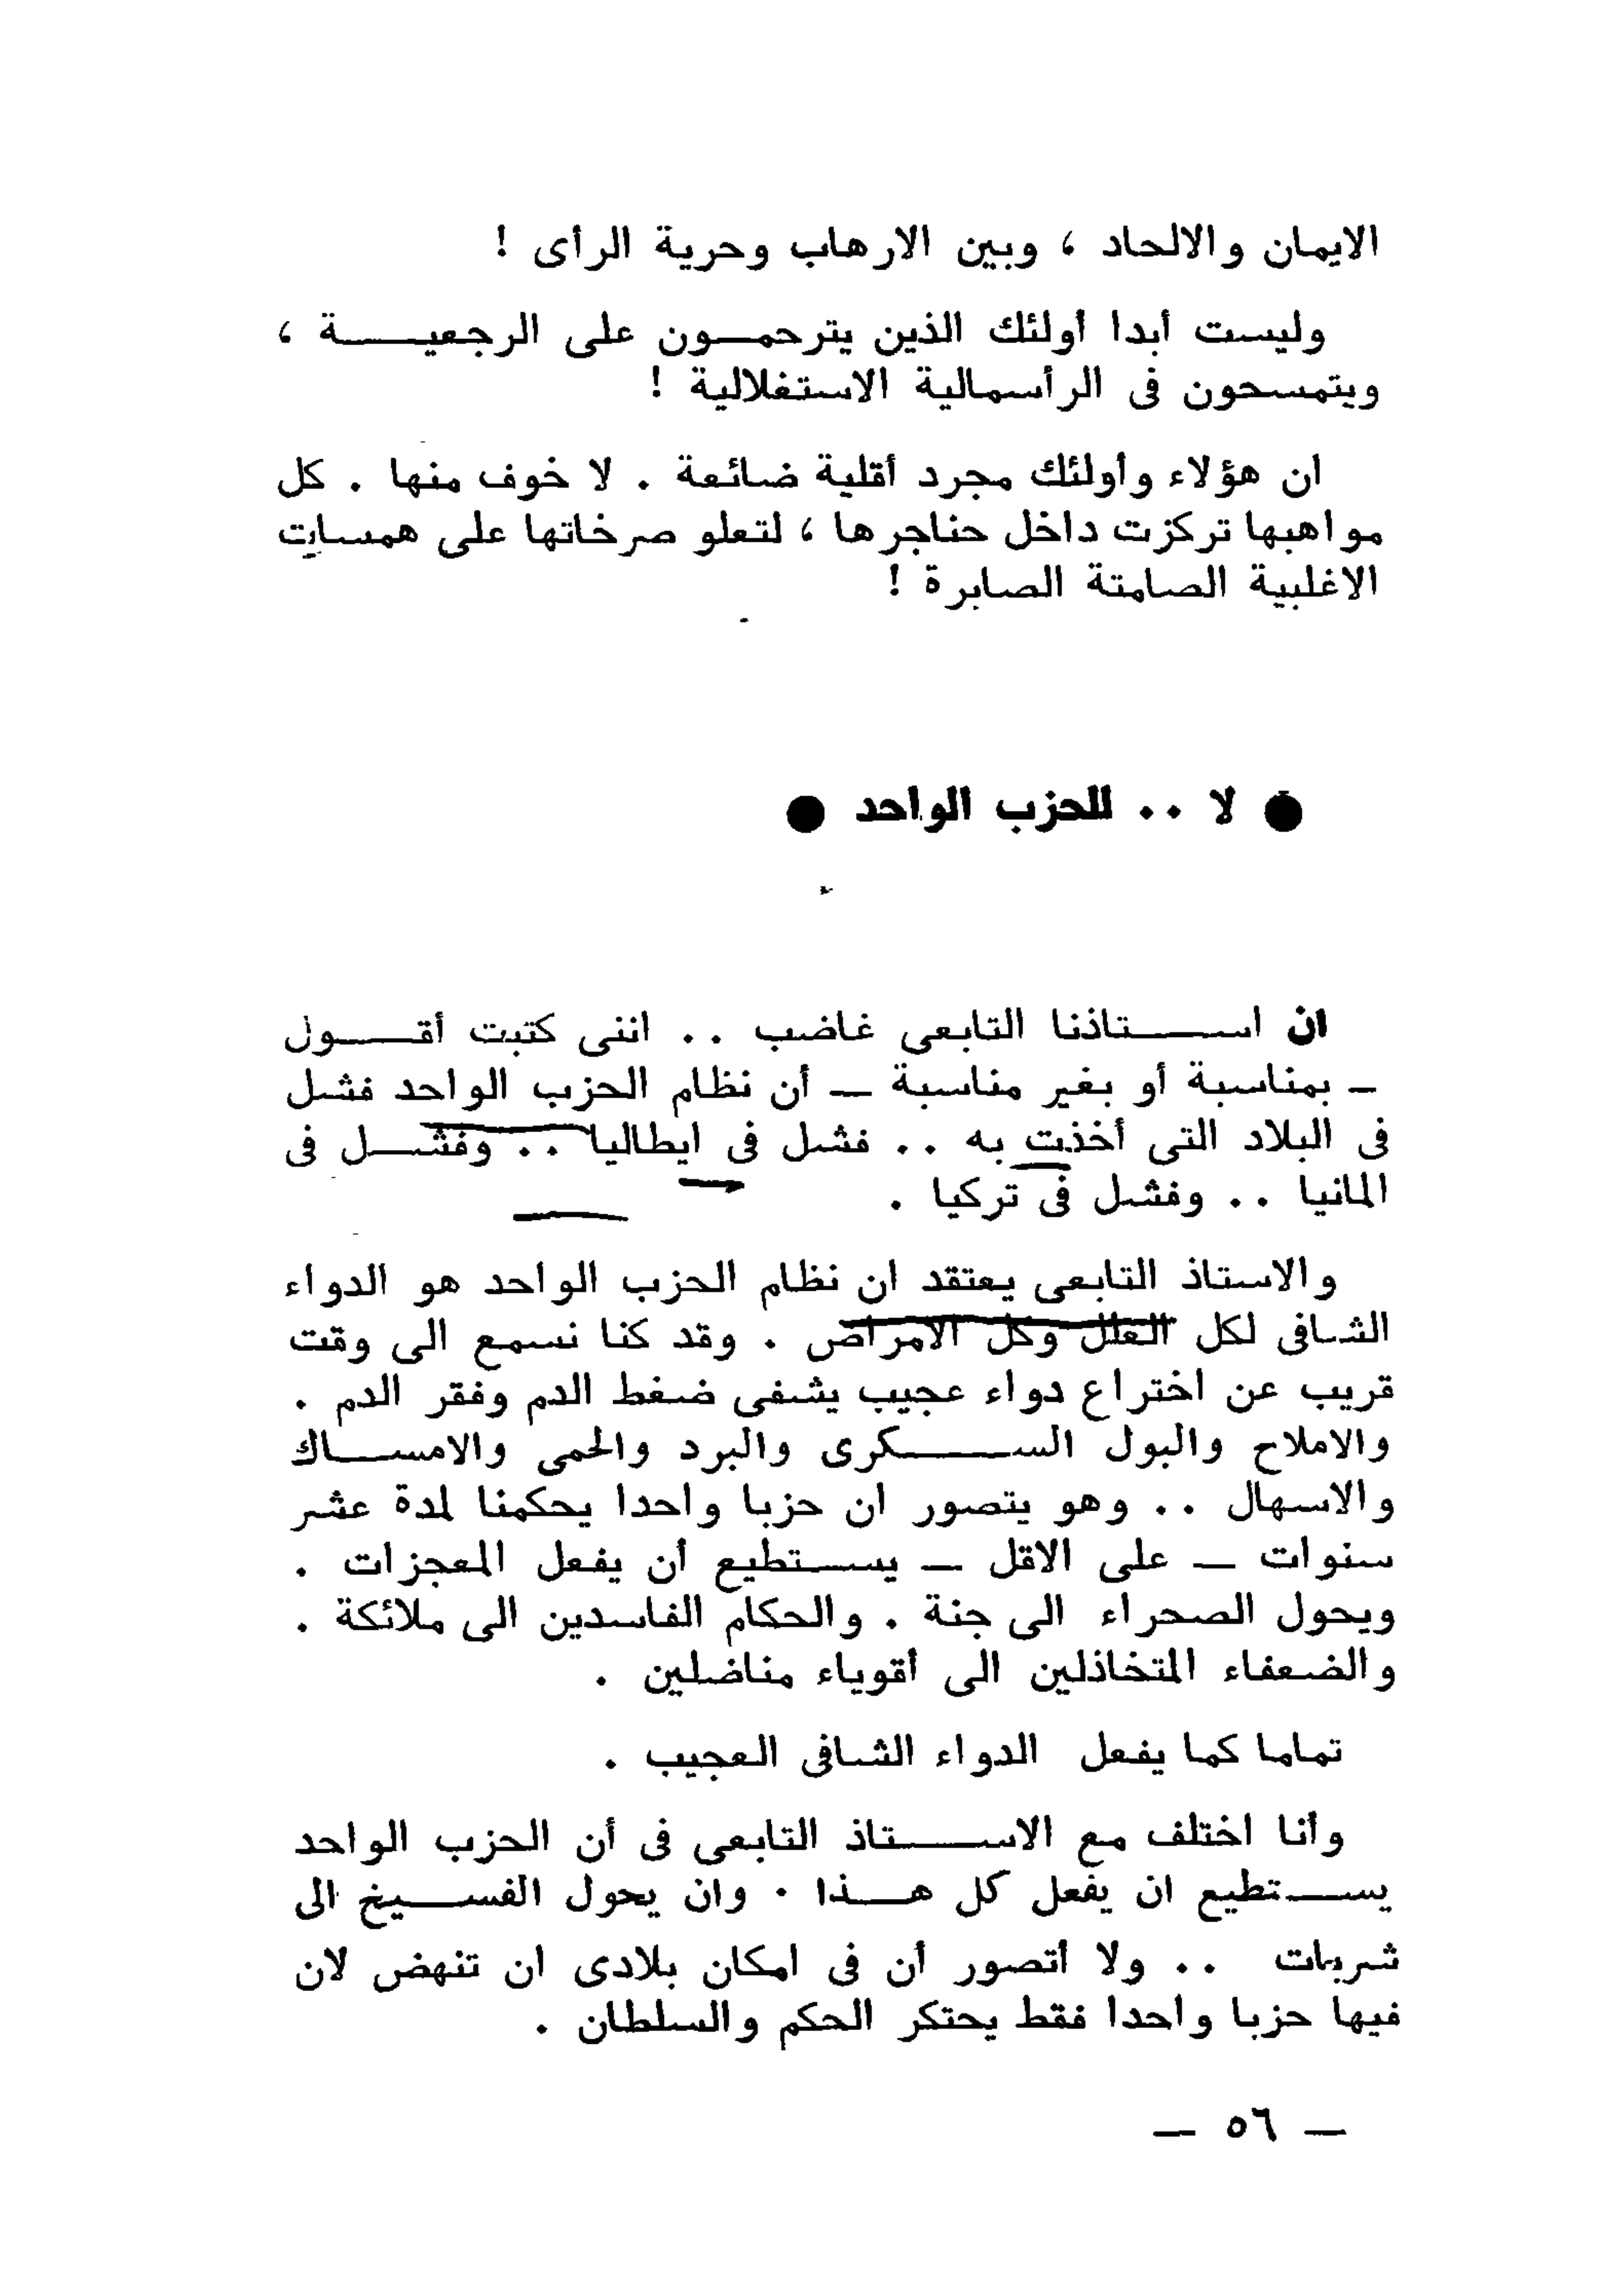 الايمان والالحاد ، وبين الارهاب وحرية الرأى !
وليست أبدا أولئك الذين يترحمون على الرجعية ،
ويتمسحون فى الرأسمالية الاستغلالية !
ان هؤلاء وأولئك مجرد أقلية ضائعة . لا خوف منها . كل
مواهبها تركزت داخل حناجرها ، لتعلو صرخاتها على همسات
الاغلبية الصامتة الصابرة !
● لا .. للحزب الواحد ●
ان استاذنا التابعى غاضب .. اننى كتبت أقول
– بمناسبة أو بغير مناسبة – أن نظام الحزب الواحد فشل
فى البلاد التى أخذت به .. فشل فى ايطاليا .. وفشل فى
المانيا .. وفشل فى تركيا .
والاستاذ التابعى يعتقد ان نظام الحزب الواحد هو الدواء
الشافى لكل العلل وكل الامراض . وقد كنا نسمع الى وقت
قريب عن اختراع دواء عجيب يشفى ضغط الدم وفقر الدم .
والاملاح والبول السكرى والبرد والحمى والامساك
والاسهال .. وهو يتصور ان حزبا واحدا يحكمنا لمدة عشر
سنوات – على الاقل – يستطيع أن يفعل المعجزات .
ويحول الصحراء الى جنة . والحكام الفاسدين الى ملائكة .
والضعفاء المتخاذلين الى أقوياء مناضلين .
تماما كما يفعل الدواء الشافى العجيب .
وأنا اختلف مع الاستاذ التابعى فى أن الحزب الواحد
يستطيع ان يفعل كل هذا . وان يحول الفسيخ الى
شربات .. ولا أتصور أن فى امكان بلادى ان تنهض لان
فيها حزبا واحدا فقط يحتكر الحكم والسلطان .
– ٥٦ –